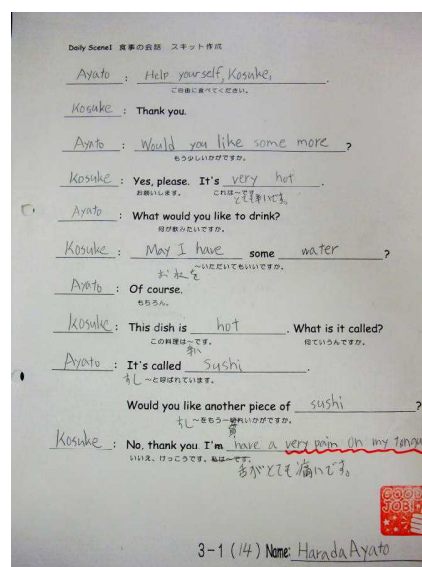 Daily Scene1 食事の会話 スキット作成
Ayato : Help yourself, Kosuke,.
ご自由に食べてください。
Kosuke : Thank you.
Ayato : Would you like some more ?
もう少しいかがですか。
Kosuke : Yes, please. It's very hot.
お願いします。 これは〜です。
とても辛いです。
Ayato : What would you like to drink?
何が飲みたいですか。
Kosuke : May I have some water ?
〜いただいてもいいですか。
Ayato : Of course.
もちろん。
Kosuke : This dish is hot. What is it called?
この料理は〜です。 何ていうんですか。
辛い
Ayato : It's called sushi.
すし 〜と呼ばれています。
Would you like another piece of sushi ?
すし 〜をもう一 いかがですか。
貫
Kosuke : No, thank you. I'm have a very pain on my tongu
いいえ、けっこうです。私は〜です。
舌がとても痛いです。
GOOD JOB!
3-1 (14) Name: Harada Ayato